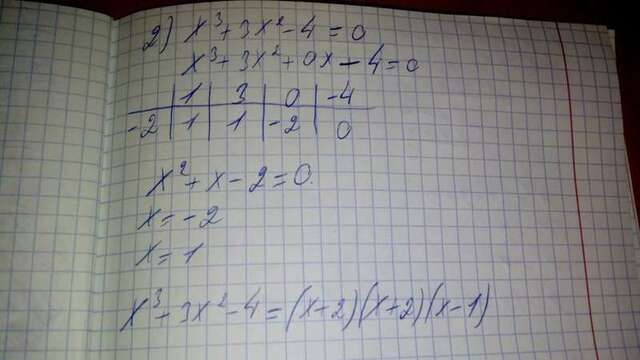 2) x³+3x²-4=0
x³+3x²+0x-4=0
1 | 3 | 0 | -4
-2 | 1 | 1 | -2 | 0
x²+x-2=0.
x=-2
x=1
x³+3x²-4=(x+2)(x+2)(x-1)